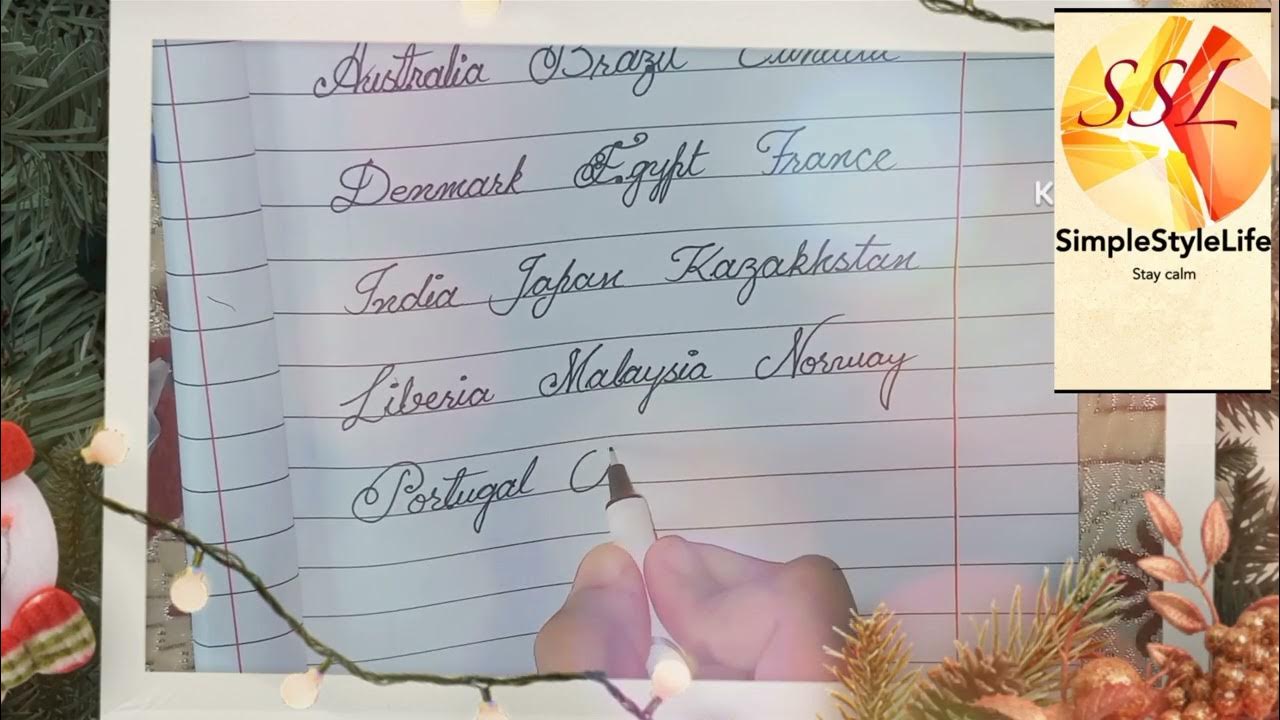 Australia Brazil Canada
Denmark Egypt France
India Japan Kazakhstan
Liberia Malaysia Norway
Portugal
SSL
SimpleStyleLife
Stay calm